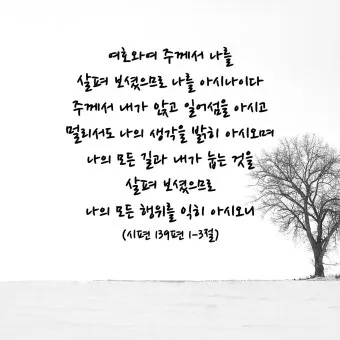 여호와여 주께서 나를
살펴 보셨으므로 나를 아시나이다
주께서 내가 앉고 일어섬을 아시고
멀리서도 나의 생각을 밝히 아시오며
나의 모든 길과 내가 눕는 것을
살펴 보셨으므로
나의 모든 행위를 익히 아시오니
(시편 139편 1-3절)